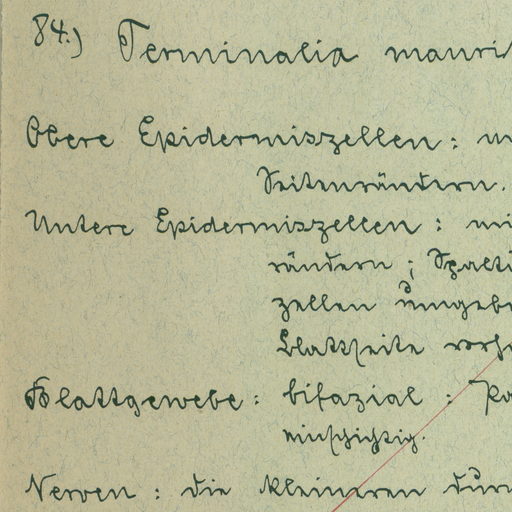 84.) Terminalia mauri
Obere Epidermiszellen: m
Seitenrändern.
Untere Epidermiszellen: mi
rändern; Spalt
zellen umgeb
Blattseite vorh
Blattgewebe: bifazial: Pa
einschichtig.
Nerven: die kleineren dur